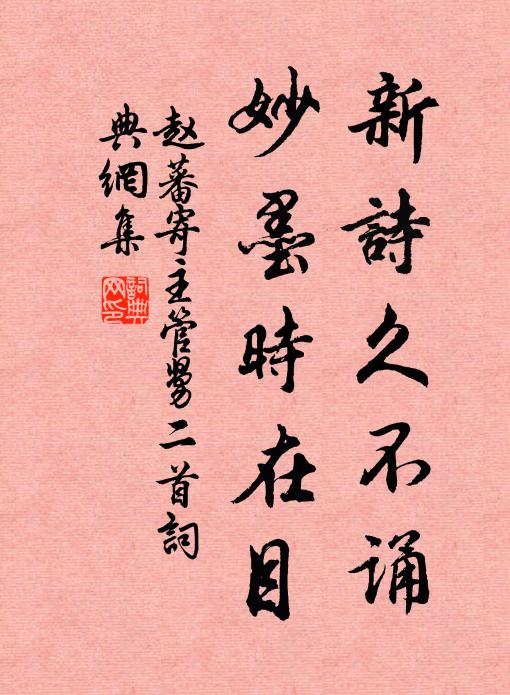 新詩久不诵
妙墨時在目
赵蕃寄主管舅二首詞
典網集
詞典
网印